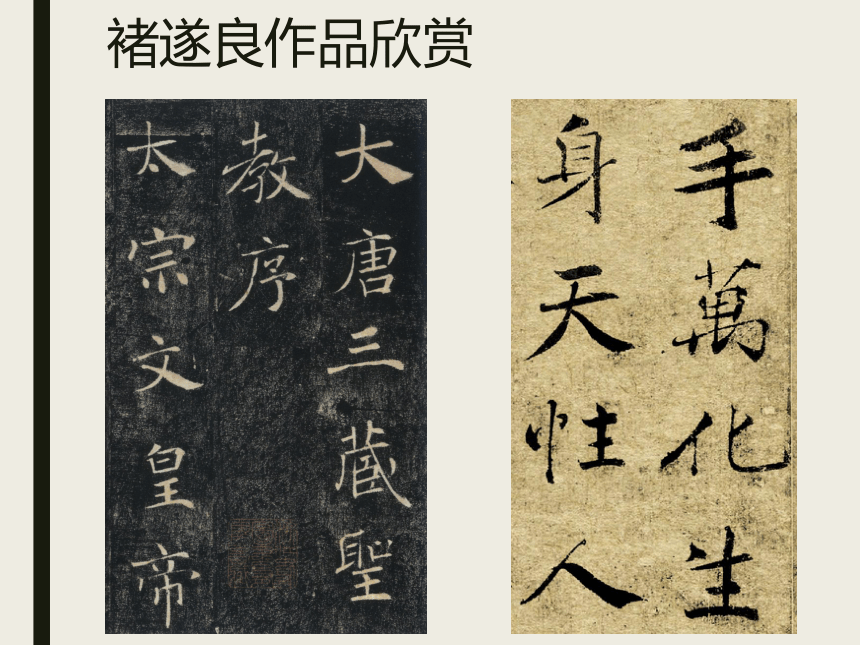 褚遂良作品欣赏
大唐三藏聖
教序
太宗文皇帝
手萬化生
身天性人